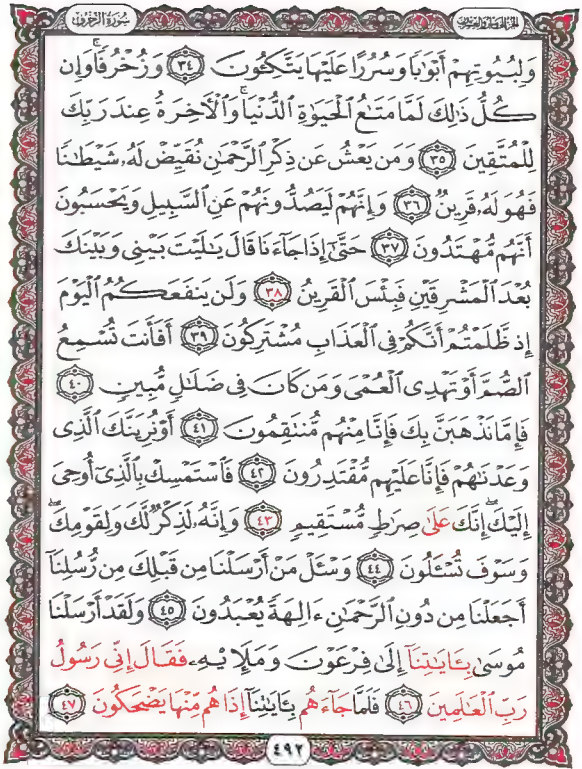 سورة الزخرف
الجزء الخامس والعشرون
وَلِبُيُوتِهِمْ أَبْوَابًا وَسُرُرًا عَلَيْهَا يَتَّكِـُٔونَ ﴿٣٤﴾ وَزُخْرُفًا ۚ وَإِن
كُلُّ ذَٰلِكَ لَمَّا مَتَـٰعُ ٱلْحَيَوٰةِ ٱلدُّنْيَا ۚ وَٱلْـَٔاخِرَةُ عِندَ رَبِّكَ
لِلْمُتَّقِينَ ﴿٣٥﴾ وَمَن يَعْشُ عَن ذِكْرِ ٱلرَّحْمَـٰنِ نُقَيِّضْ لَهُۥ شَيْطَـٰنًا
فَهُوَ لَهُۥ قَرِينٌ ﴿٣٦﴾ وَإِنَّهُمْ لَيَصُدُّونَهُمْ عَنِ ٱلسَّبِيلِ وَيَحْسَبُونَ
أَنَّهُم مُّهْتَدُونَ ﴿٣٧﴾ حَتَّىٰٓ إِذَا جَآءَنَا قَالَ يَـٰلَيْتَ بَيْنِى وَبَيْنَكَ
بُعْدَ ٱلْمَشْرِقَيْنِ فَبِئْسَ ٱلْقَرِينُ ﴿٣٨﴾ وَلَن يَنفَعَكُمُ ٱلْيَوْمَ
إِذ ظَّلَمْتُمْ أَنَّكُمْ فِى ٱلْعَذَابِ مُشْتَرِكُونَ ﴿٣٩﴾ أَفَأَنتَ تُسْمِعُ
ٱلصُّمَّ أَوْ تَهْدِى ٱلْعُمْىَ وَمَن كَانَ فِى ضَلَـٰلٍ مُّبِينٍ ﴿٤٠﴾
فَإِمَّا نَذْهَبَنَّ بِكَ فَإِنَّا مِنْهُم مُّنتَقِمُونَ ﴿٤١﴾ أَوْ نُرِيَنَّكَ ٱلَّذِى
وَعَدْنَـٰهُمْ فَإِنَّا عَلَيْهِم مُّقْتَدِرُونَ ﴿٤٢﴾ فَٱسْتَمْسِكْ بِٱلَّذِىٓ أُوحِىَ
إِلَيْكَ ۖ إِنَّكَ عَلَىٰ صِرَٰطٍ مُّسْتَقِيمٍ ﴿٤٣﴾ وَإِنَّهُۥ لَذِكْرٌ لَّكَ وَلِقَوْمِكَ ۖ
وَسَوْفَ تُسْـَٔلُونَ ﴿٤٤﴾ وَسْـَٔلْ مَنْ أَرْسَلْنَا مِن قَبْلِكَ مِن رُّسُلِنَآ
أَجَعَلْنَا مِن دُونِ ٱلرَّحْمَـٰنِ ءَالِهَةً يُعْبَدُونَ ﴿٤٥﴾ وَلَقَدْ أَرْسَلْنَا
مُوسَىٰ بِـَٔايَـٰتِنَآ إِلَىٰ فِرْعَوْنَ وَمَلَإِي۟هِۦ فَقَالَ إِنِّى رَسُولُ
رَبِّ ٱلْعَـٰلَمِينَ ﴿٤٦﴾ فَلَمَّا جَآءَهُم بِـَٔايَـٰتِنَآ إِذَا هُم مِّنْهَا يَضْحَكُونَ ﴿٤٧﴾
٤٩٢